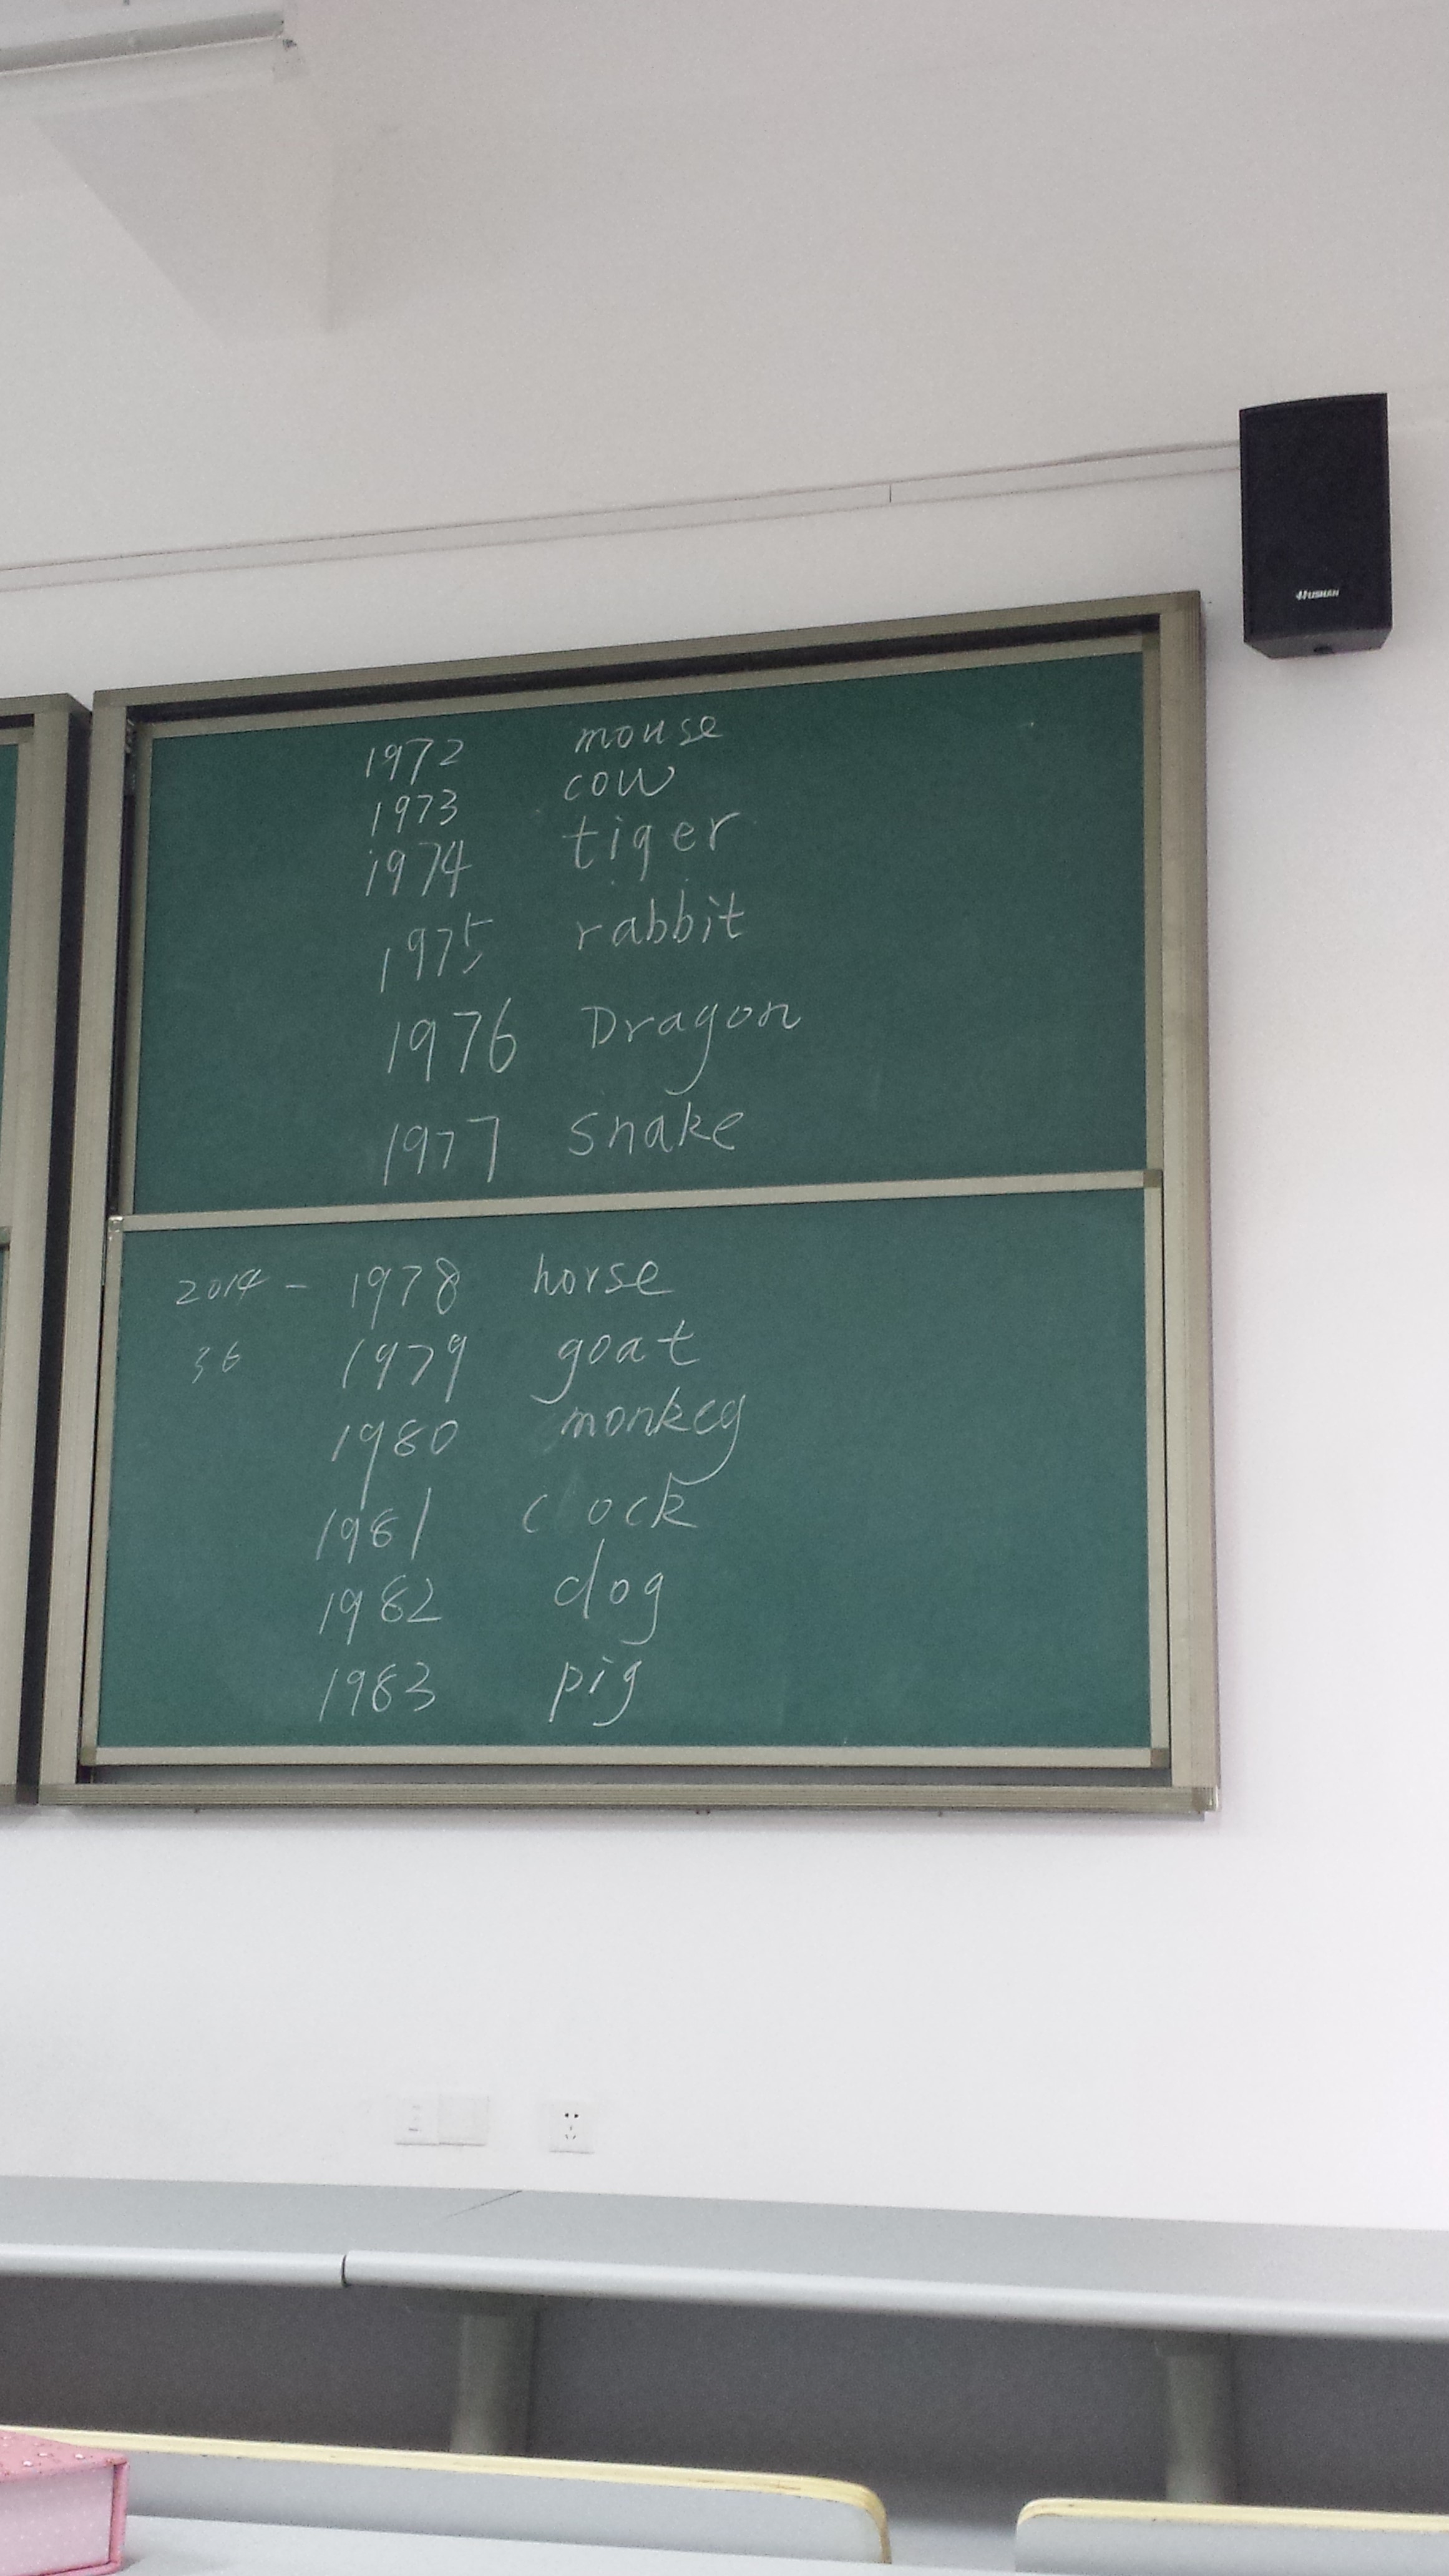 HUSHAN
1972 mouse
1973 cow
1974 tiger
1975 rabbit
1976 Dragon
1977 snake
2014 - 1978 horse
36 1979 goat
1980 monkey
1981 cock
1982 dog
1983 pig